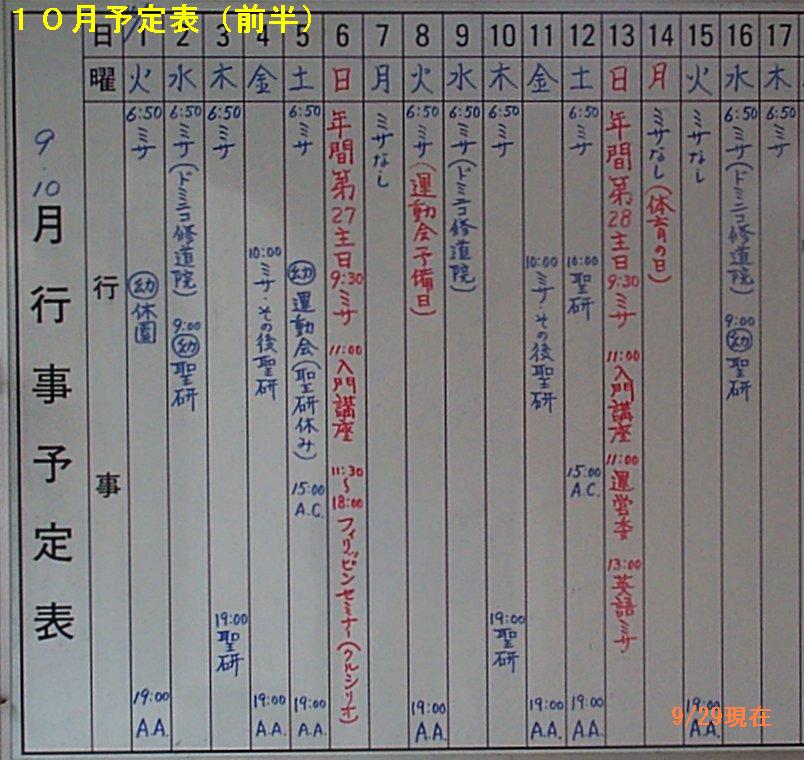 10月予定表（前半）
9.10月行事予定表
日
曜
行事
1
火
6:50
ミサ
㊙休園
19:00
A.A.
2
水
6:50
ミサ(ドミニコ修道院)
9:00
幼
聖研
3
木
6:50
ミサ
19:00
聖研
4
金
10:00
ミサ・その後聖研
19:00
A.A.
5
土
6:50
ミサ
幼
運動会(聖研休み)
15:00
A.C.
19:00
A.A.
6
日
年間第27主日
9:30
ミサ
11:00
入門講座
11:30
〜
18:00
フィリッピンセミナー(クルシリオ)
7
月
ミサなし
8
火
6:50
ミサ(運動会予備日)
19:00
A.A.
9
水
6:50
ミサ(ドミニコ修道院)
10
木
6:50
ミサ
19:00
聖研
11
金
10:00
ミサ・その後聖研
19:00
A.A.
12
土
6:50
ミサ
10:00
聖研
15:00
A.C.
19:00
A.A.
13
日
年間第28主日
9:30
ミサ
11:00
入門講座
11:00
運営委
13:00
英語ミサ
14
月
ミサなし(体育の日)
15
火
ミサなし
19:00
A.A.
16
水
6:50
ミサ(ドミニコ修道院)
9:00
幼
聖研
17
木
6:50
ミサ
9/29現在